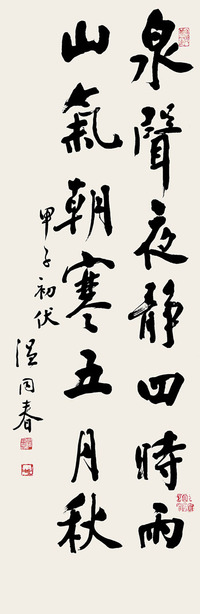 泉聲夜靜四時雨
山氣朝寒五月秋
甲子初伏
溫同春